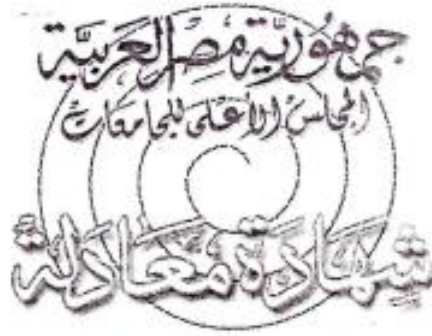 جمهورية مصر العربية
المجلس الأعلى للجامعات
شهادة معادلة